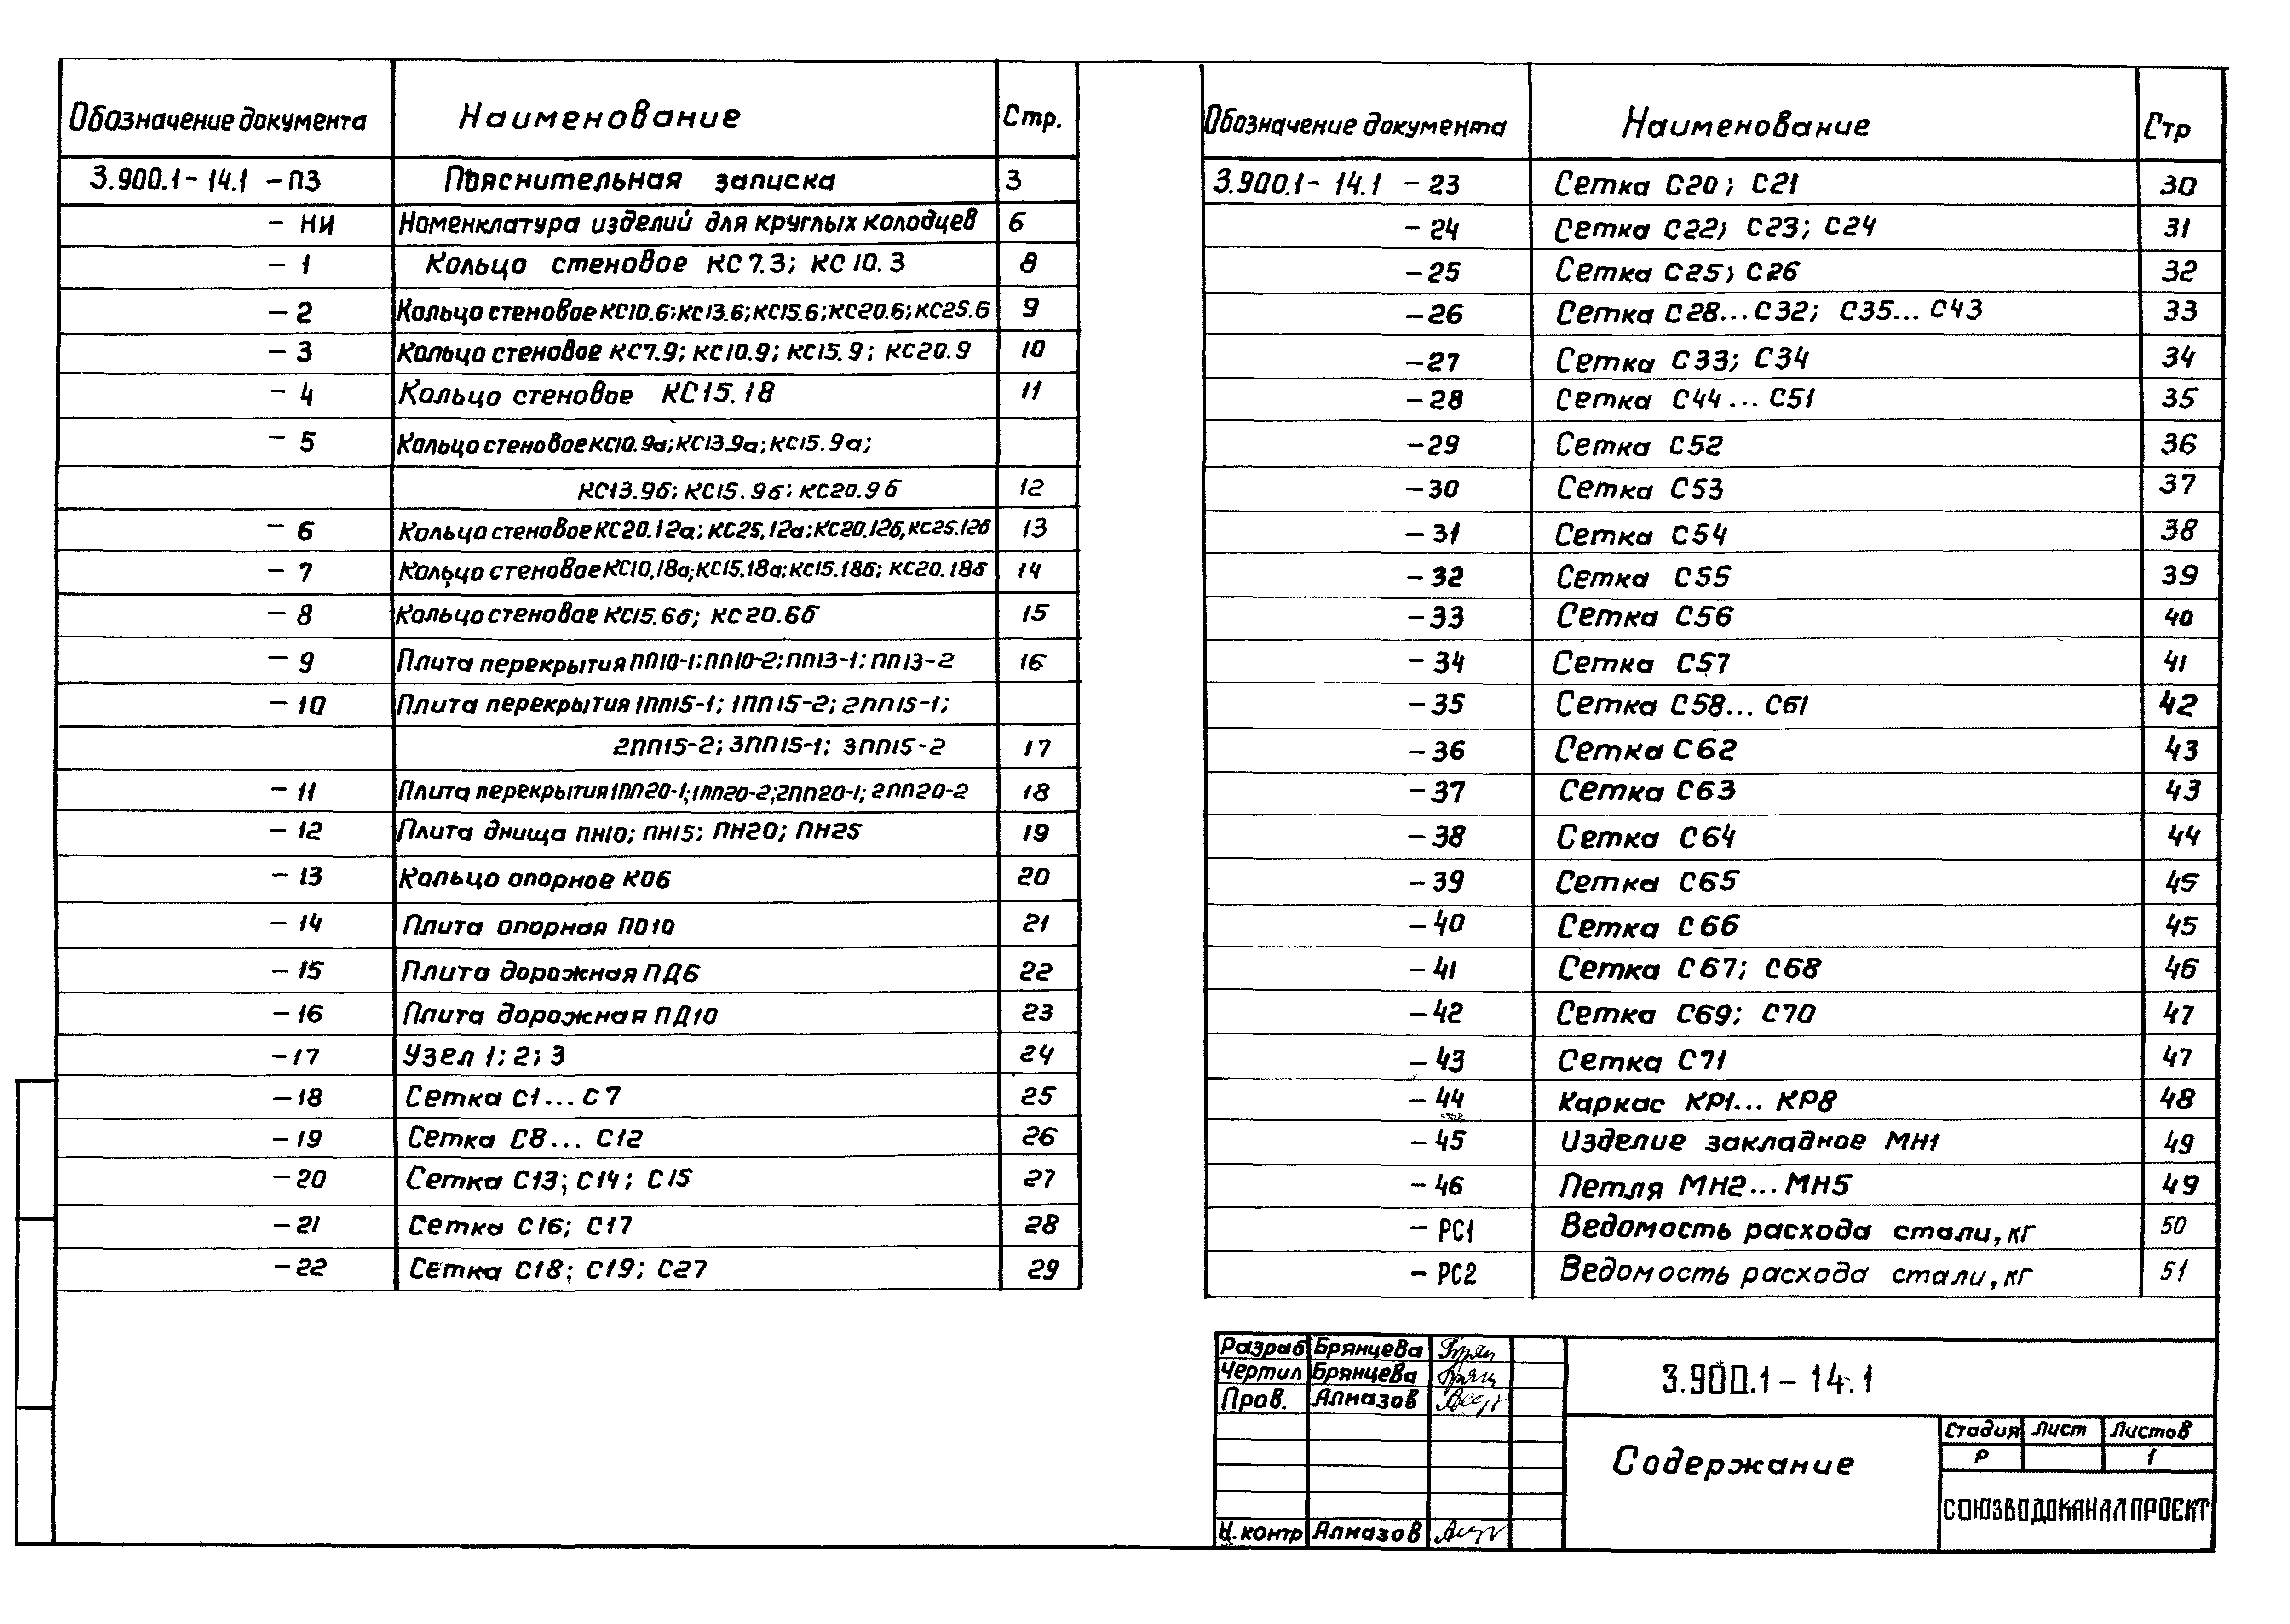 Обозначение документа Наименование Стр.
3.900.1-14.1 -ПЗ Пояснительная записка 3
- НИ Номенклатура изделий для круглых колодцев 6
- 1 Кольцо стеновое КС7.3; КС10.3 8
- 2 Кольцо стеновое КС10.6; КС13.6; КС15.6; КС20.6; КС25.6 9
- 3 Кольцо стеновое КС7.9; КС10.9; КС15.9; КС20.9 10
- 4 Кольцо стеновое КС15.18 11
- 5 Кольцо стеновое КС10.9а; КС13.9а; КС15.9а;
КС13.9б; КС15.9б; КС20.9б 12
- 6 Кольцо стеновое КС20.12а; КС25,12а; КС20.12б, КС25.12б 13
- 7 Кольцо стеновое КС10,18а; КС15.18а; КС15.18б; КС20.18б 14
- 8 Кольцо стеновое КС15.6б; КС20.6б 15
- 9 Плита перекрытия ПП10-1; ПП10-2; ПП13-1; ПП13-2 16
- 10 Плита перекрытия 1ПП15-1; 1ПП15-2; 2ПП15-1;
2ПП15-2; 3ПП15-1; 3ПП15-2 17
- 11 Плита перекрытия 1ПП20-1; 1ПП20-2; 2ПП20-1; 2ПП20-2 18
- 12 Плита днища ПН10; ПН15; ПН20; ПН25 19
- 13 Кольцо опорное КО6 20
- 14 Плита опорная ПО10 21
- 15 Плита дорожная ПД6 22
- 16 Плита дорожная ПД10 23
- 17 Узел 1; 2; 3 24
- 18 Сетка С1...С7 25
- 19 Сетка С8... С12 26
- 20 Сетка С13; С14; С15 27
- 21 Сетка С16; С17 28
- 22 Сетка С18; С19; С27 29
Обозначение документа Наименование Стр
3.900.1- 14.1 - 23 Сетка С20; С21 30
- 24 Сетка С22; С23; С24 31
- 25 Сетка С25; С26 32
- 26 Сетка С28...С32; С35... С43 33
- 27 Сетка С33; С34 34
- 28 Сетка С44... С51 35
- 29 Сетка С52 36
- 30 Сетка С53 37
- 31 Сетка С54 38
- 32 Сетка С55 39
- 33 Сетка С56 40
- 34 Сетка С57 41
- 35 Сетка С58... С61 42
- 36 Сетка С62 43
- 37 Сетка С63 43
- 38 Сетка С64 44
- 39 Сетка С65 45
- 40 Сетка С66 45
- 41 Сетка С67; С68 46
- 42 Сетка С69; С70 47
- 43 Сетка С71 47
- 44 Каркас КР1... КР8 48
- 45 Изделие закладное МН1 49
- 46 Петля МН2...МН5 49
- РС1 Ведомость расхода стали, кг 50
- РС2 Ведомость расхода стали, кг 51
Разраб Брянцева
Чертил Брянцева
Пров. Алмазов
Н. контр Алмазов
3.900.1- 14.1
Содержание
Стадия Лист Листов
Р 1
СОЮЗВОДОКАНАЛПРОЕКТ